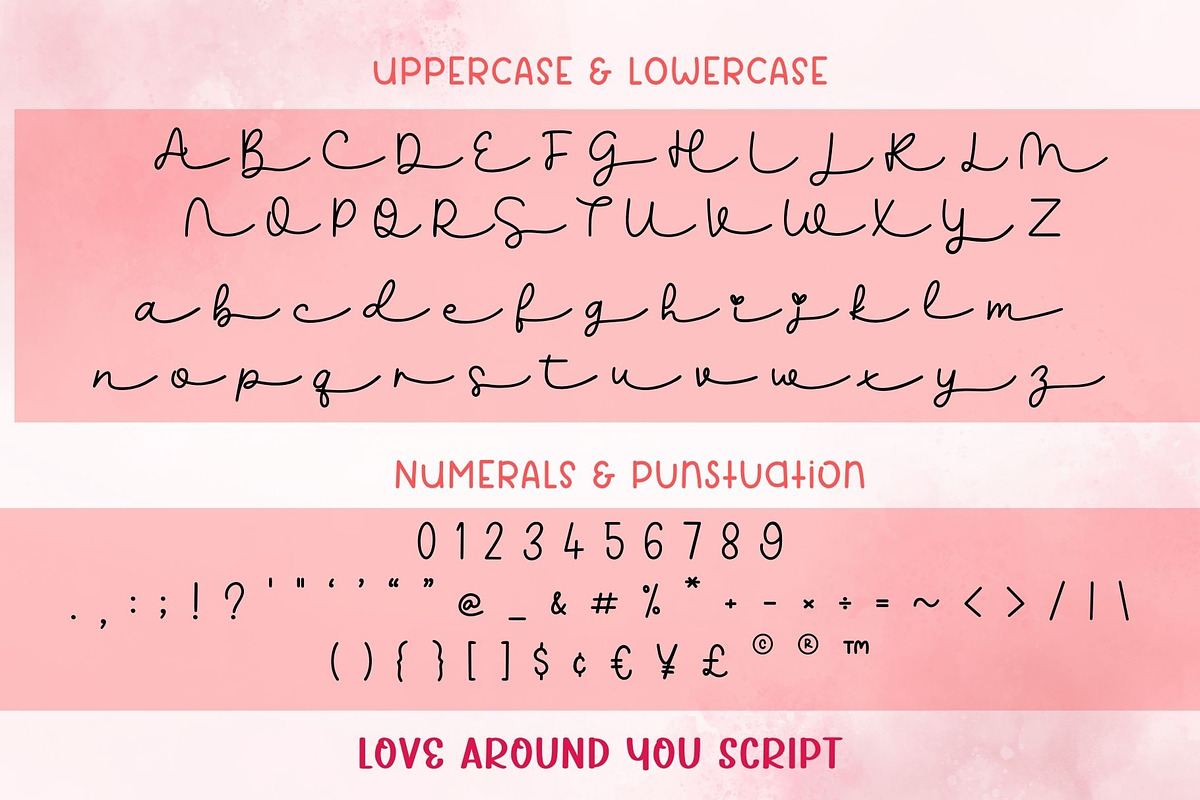 UPPERCASE & LOWERCASE
A B C D E F G H I J K L M
N O P Q R S T U V W X Y Z
a b c d e f g h i j k l m
n o p q r s t u v w x y z
NUMERALS & PUNSTUATION
0 1 2 3 4 5 6 7 8 9
. , : ; ! ? ' " ‘ ’ “ ” @ _ & # % * + - × ÷ = ~ < > / | \
( ) { } [ ] $ ¢ € ¥ £ © ® ™
LOVE AROUND YOU SCRIPT